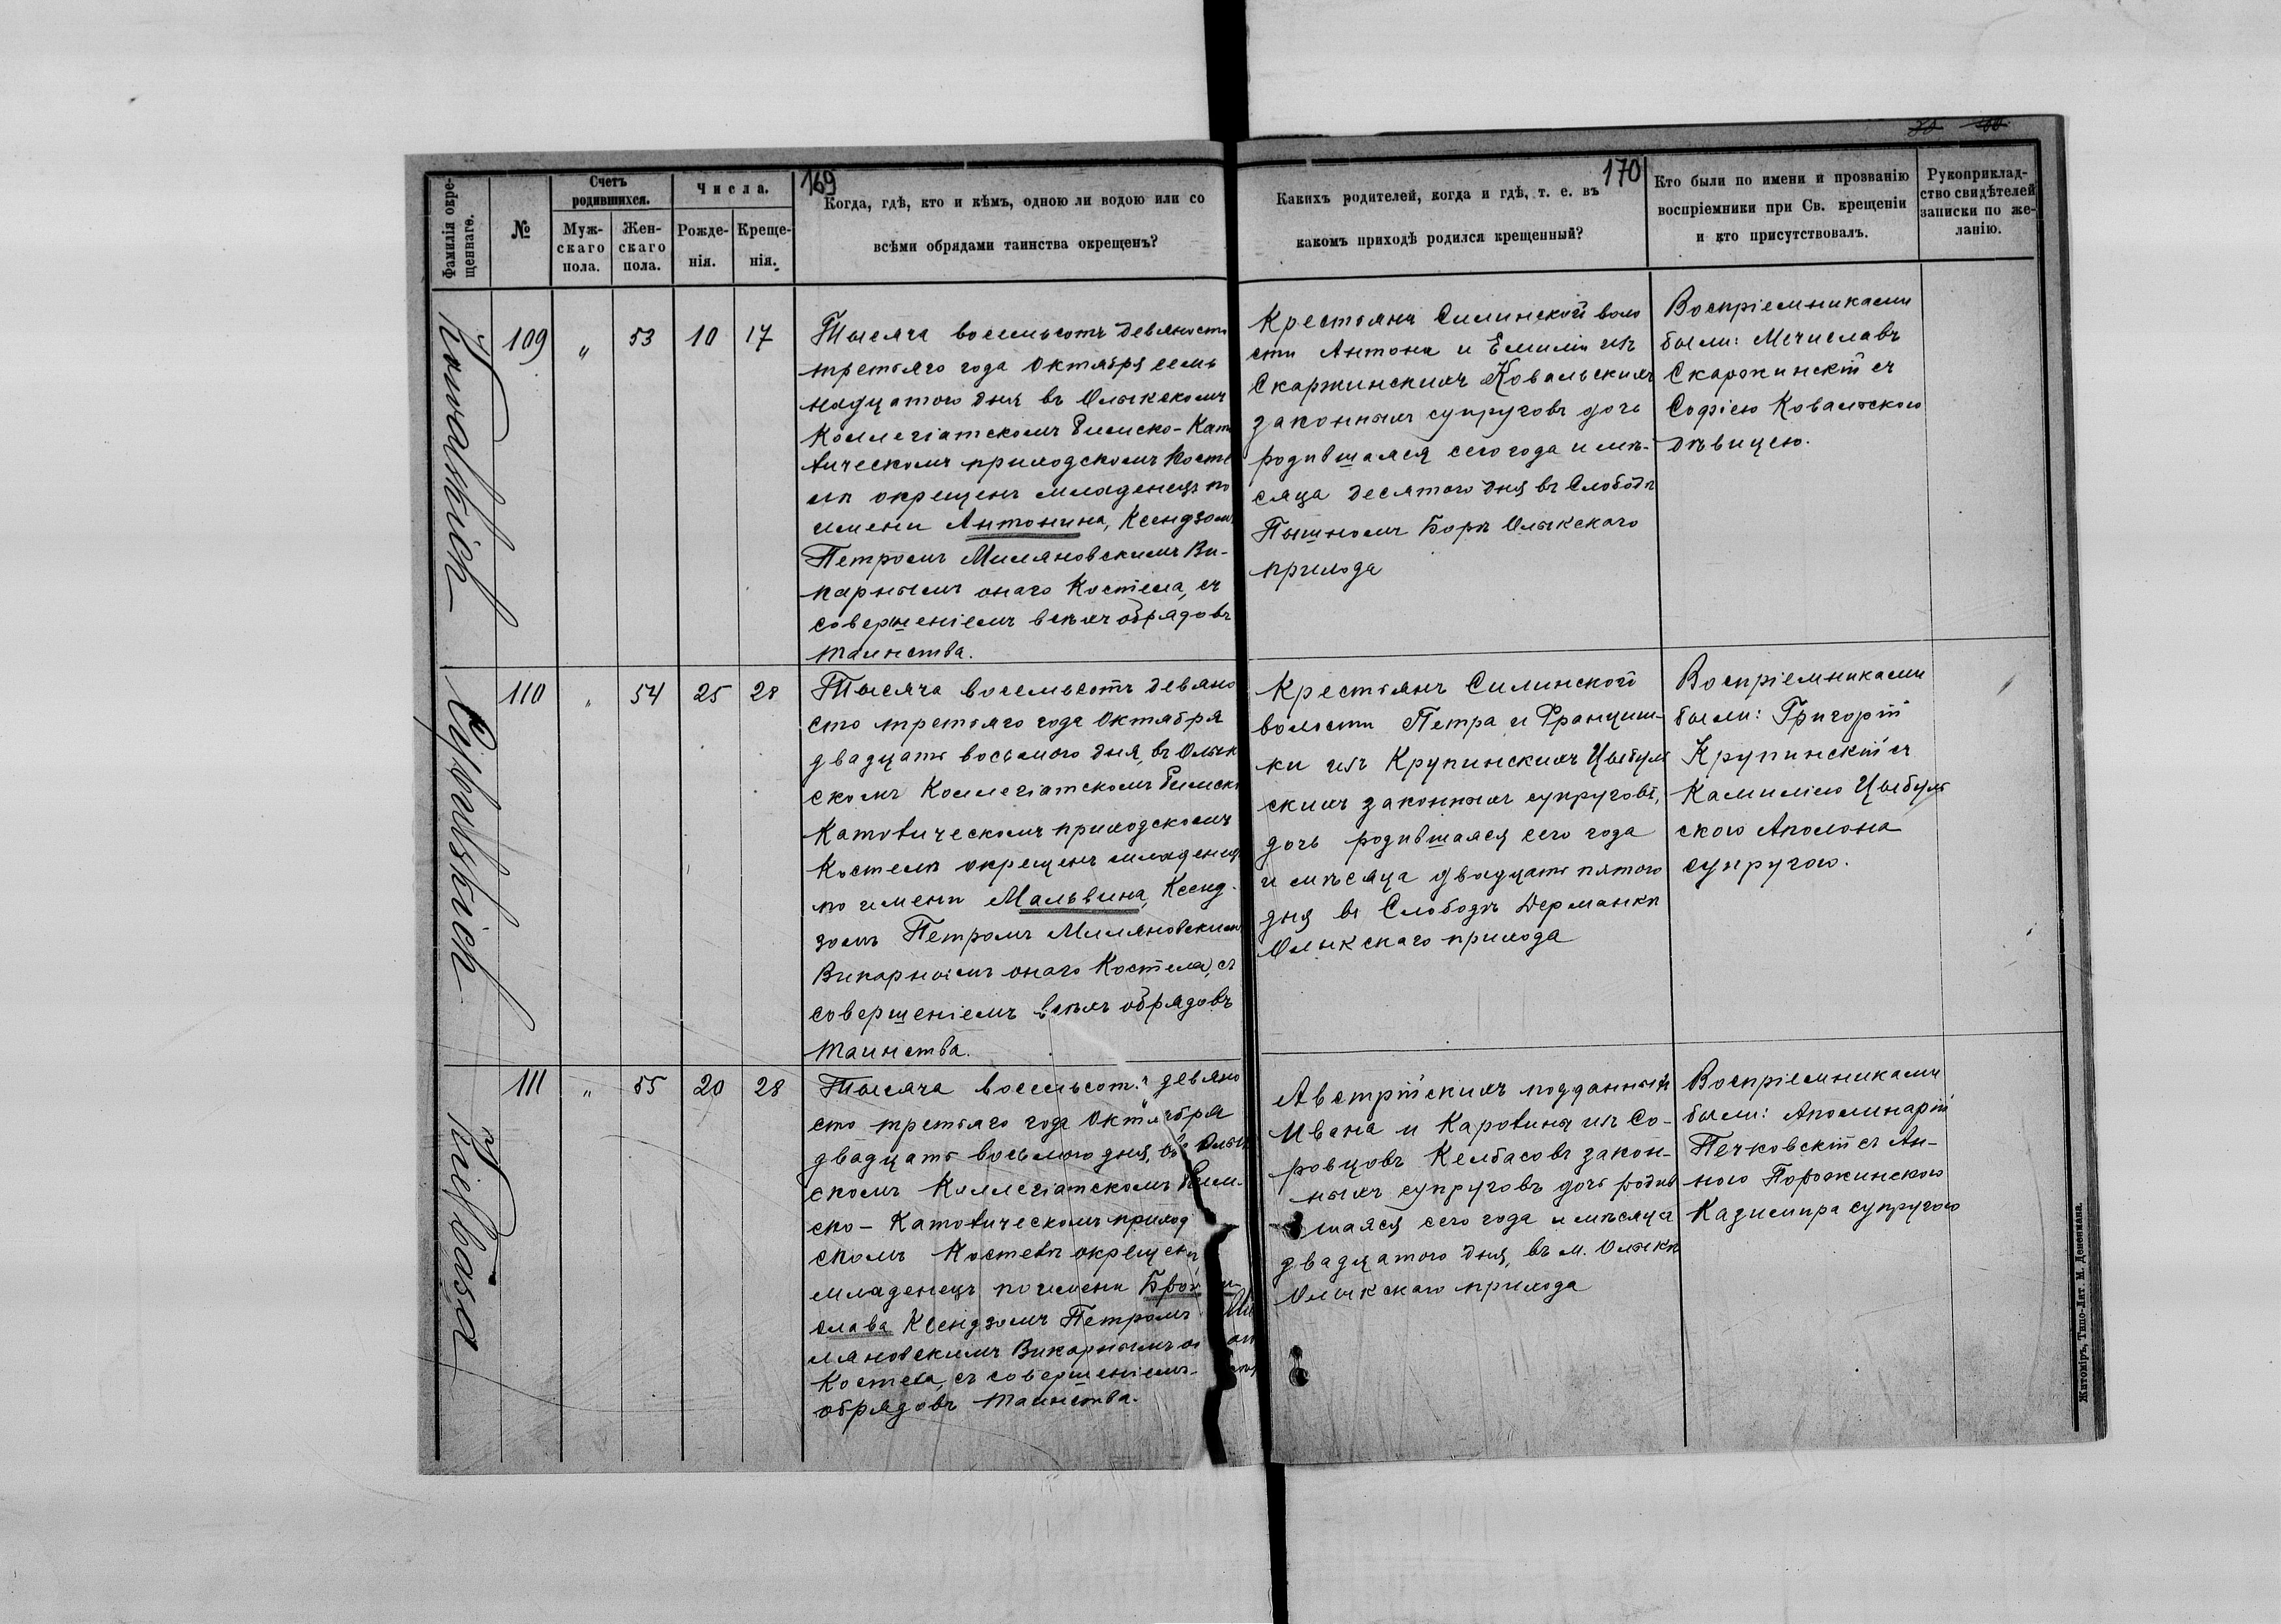 169
170
Фамилія окре-
щеннаго.
№
Счетъ
родившихся.
Муж-
скаго
пола.
Жен-
скаго
пола.
Числа.
Рожде-
нія.
Креще-
нія.
Когда, гдѣ, кто и кѣмъ, одною ли водою или со
всѣми обрядами таинства окрещенъ?
Какихъ родителей, когда и гдѣ, т. е. въ
какомъ приходѣ родился крещенный?
Кто были по имени и прозванію
воспріемники при Св. крещеніи
и кто присутствовалъ.
Рукоприклад-
ство свидѣтелей
записки по же-
ланію.
Kowalskich
109 „ 53 10 17
Тысяча восемьсотъ девяносто
третьяго года Октября семь
надцатого дня въ Олыкскомъ
Коллегіатскомъ Римско-Като
лическомъ приходскомъ Косте
лѣ окрещенъ младенецъ по
имени Антонина, Ксендзомъ
Петромъ Миляновскимъ Ви-
карнымъ онаго Костела, съ
совершеніемъ всѣхъ обрядовъ
таинства.
Крестьянъ Силинской воло
сти Антона и Емиліи изъ
Скаржинскихъ Ковальскихъ
законныхъ супруговъ дочь
родившаяся сего года и мѣ-
сяца десятого дня въ Слободѣ
Пышномъ Борѣ Олыкского
прихода
Воспріемниками
были: Мечиславъ
Скаржинскій съ
Софіею Ковальскою
дѣвицею.
Cybulskich
110 „ 54 25 28
Тысяча восемьсотъ девяно
сто третьяго года Октября
двадцать восьмого дня, въ Олык
скомъ Коллегіатскомъ Римско
Католическомъ приходскомъ
Костелѣ окрещенъ младенецъ
по имени Мальвина, Ксенд-
зомъ Петромъ Миляновскимъ
Викарнымъ онаго Костела, съ
совершеніемъ всѣхъ обрядовъ
таинства.
Крестьянъ Силинской
волости Петра и Францишки
ки изъ Крупинскихъ Цыбуль
скихъ законныхъ супруговъ,
дочь родившаяся сего года
и мѣсяца двадцать пятого
дня въ Слободѣ Дерманкѣ
Олыкскаго прихода
Воспріемниками
были: Григорій
Крупинскій съ
Камиліею Цыбуль
скою Аполона
супругою.
Kiełbasa
111 „ 55 20 28
Тысяча восемьсотъ девяно
сто третьяго года Октября
двадцать восьмого дня, въ Олык
скомъ Коллегіатскомъ Рим-
ско-Католическомъ приход
скомъ Костелѣ окрещенъ
младенецъ по имени Брони-
слава Ксендзомъ Петромъ Ми
ляновскимъ Викарнымъ он
Костела, съ совершеніемъ
обрядовъ таинства.
Австрійскихъ подданныхъ
Ивана и Каролины изъ Со-
ровцовъ Келбасовъ закон-
ныхъ супруговъ дочь родив
шаяся сего года и мѣсяца
двадцатого дня, въ м. Олыкѣ
Олыкскаго прихода
Воспріемниками
были: Аполинарій
Печковскій съ Ан-
ною Порожинскою
Казимира супругою
Житоміръ, Типо-Лит. М. Дененмана.